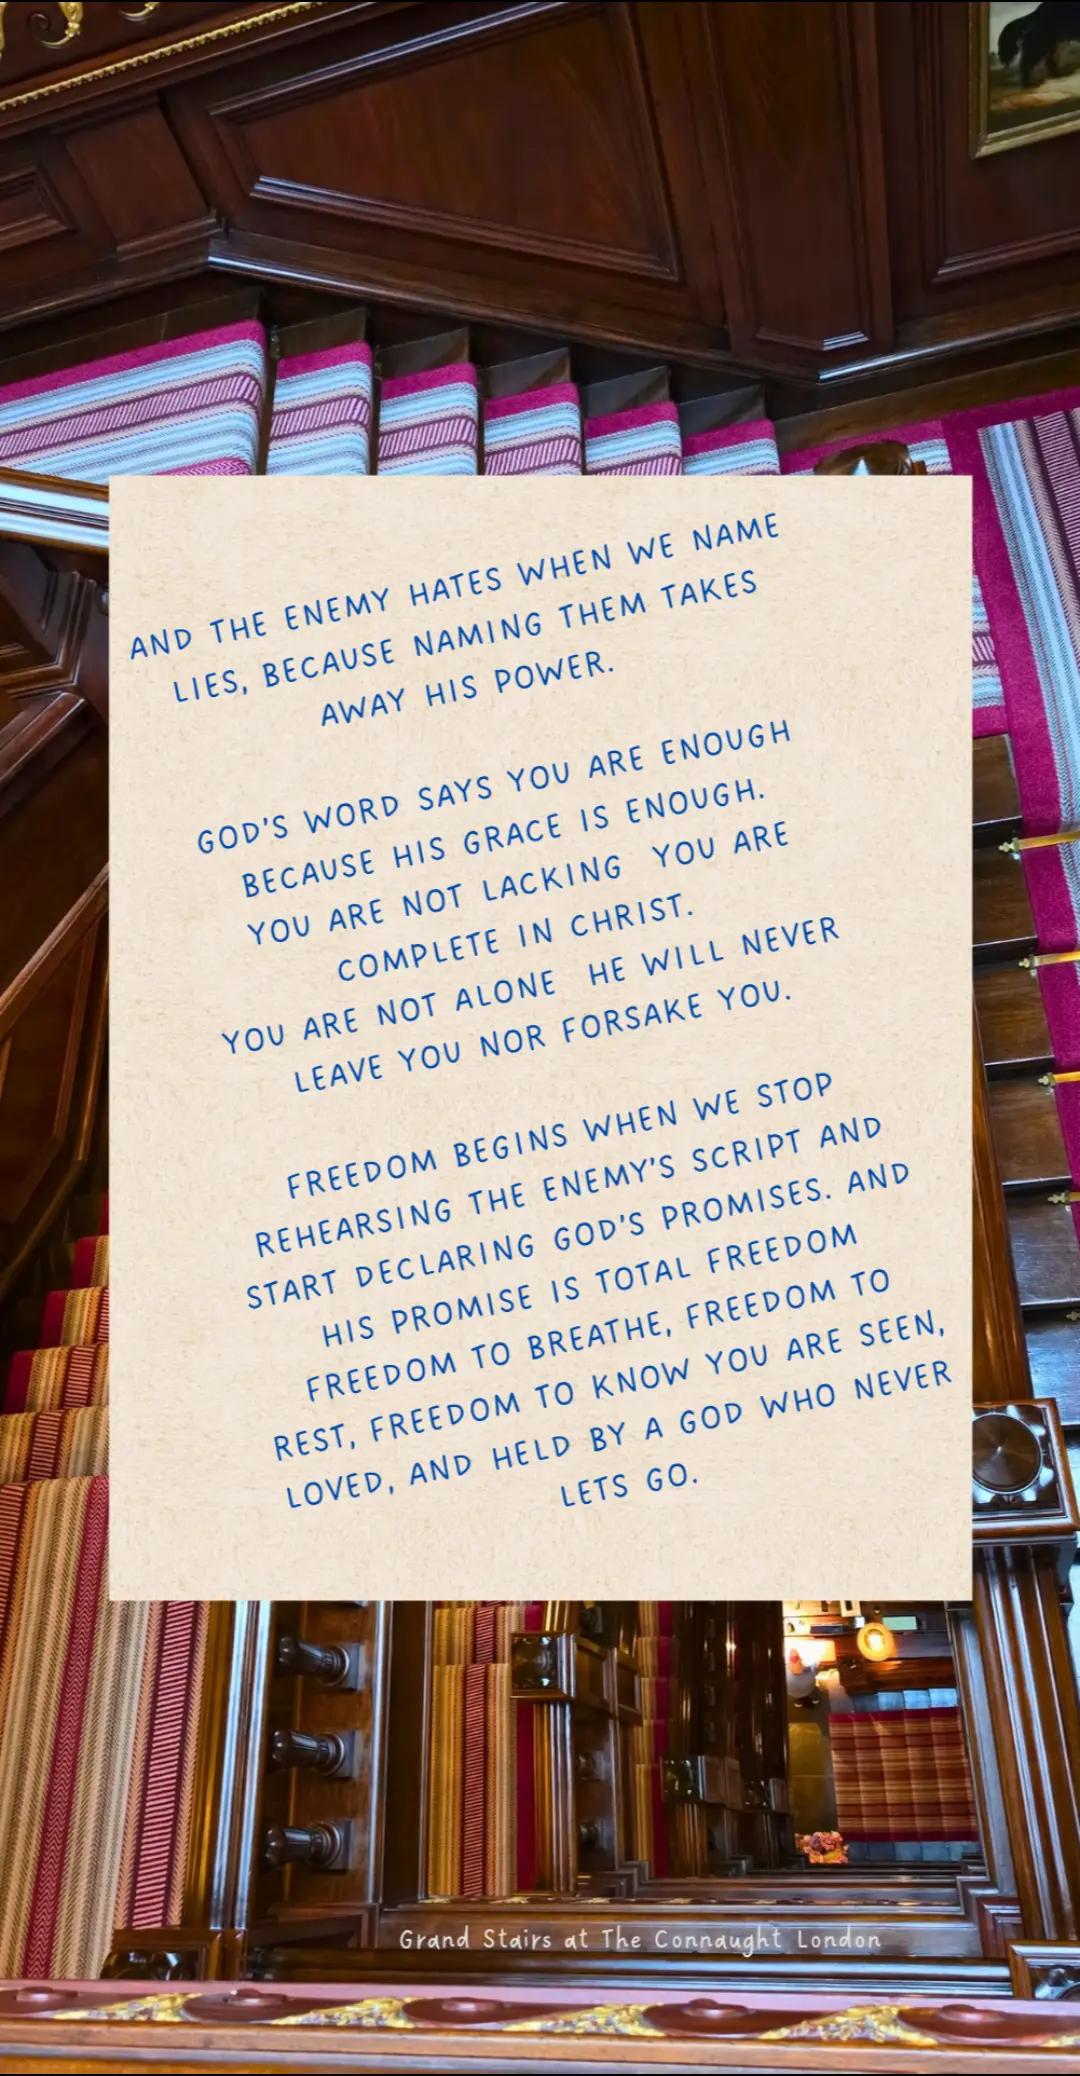 AND THE ENEMY HATES WHEN WE NAME
LIES, BECAUSE NAMING THEM TAKES
AWAY HIS POWER.
GOD'S WORD SAYS YOU ARE ENOUGH
BECAUSE HIS GRACE IS ENOUGH.
YOU ARE NOT LACKING YOU ARE
COMPLETE IN CHRIST.
YOU ARE NOT ALONE HE WILL NEVER
LEAVE YOU NOR FORSAKE YOU.
FREEDOM BEGINS WHEN WE STOP
REHEARSING THE ENEMY'S SCRIPT AND
START DECLARING GOD'S PROMISES. AND
HIS PROMISE IS TOTAL FREEDOM
FREEDOM TO BREATHE, FREEDOM TO
REST, FREEDOM TO KNOW YOU ARE SEEN,
LOVED, AND HELD BY A GOD WHO NEVER
LETS GO.
Grand Stairs at The Connaught London